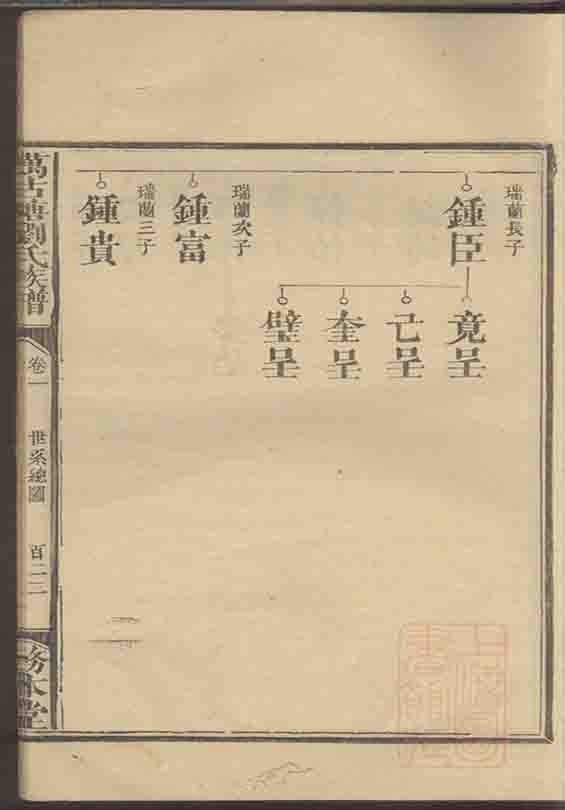 瑞蘭長子
鍾臣
竟呈
亡呈
奎呈
壁呈
瑞蘭次子
鍾富
瑞蘭三子
鍾貴
劉氏族譜
卷一
世系總圖
百二二
務本堂